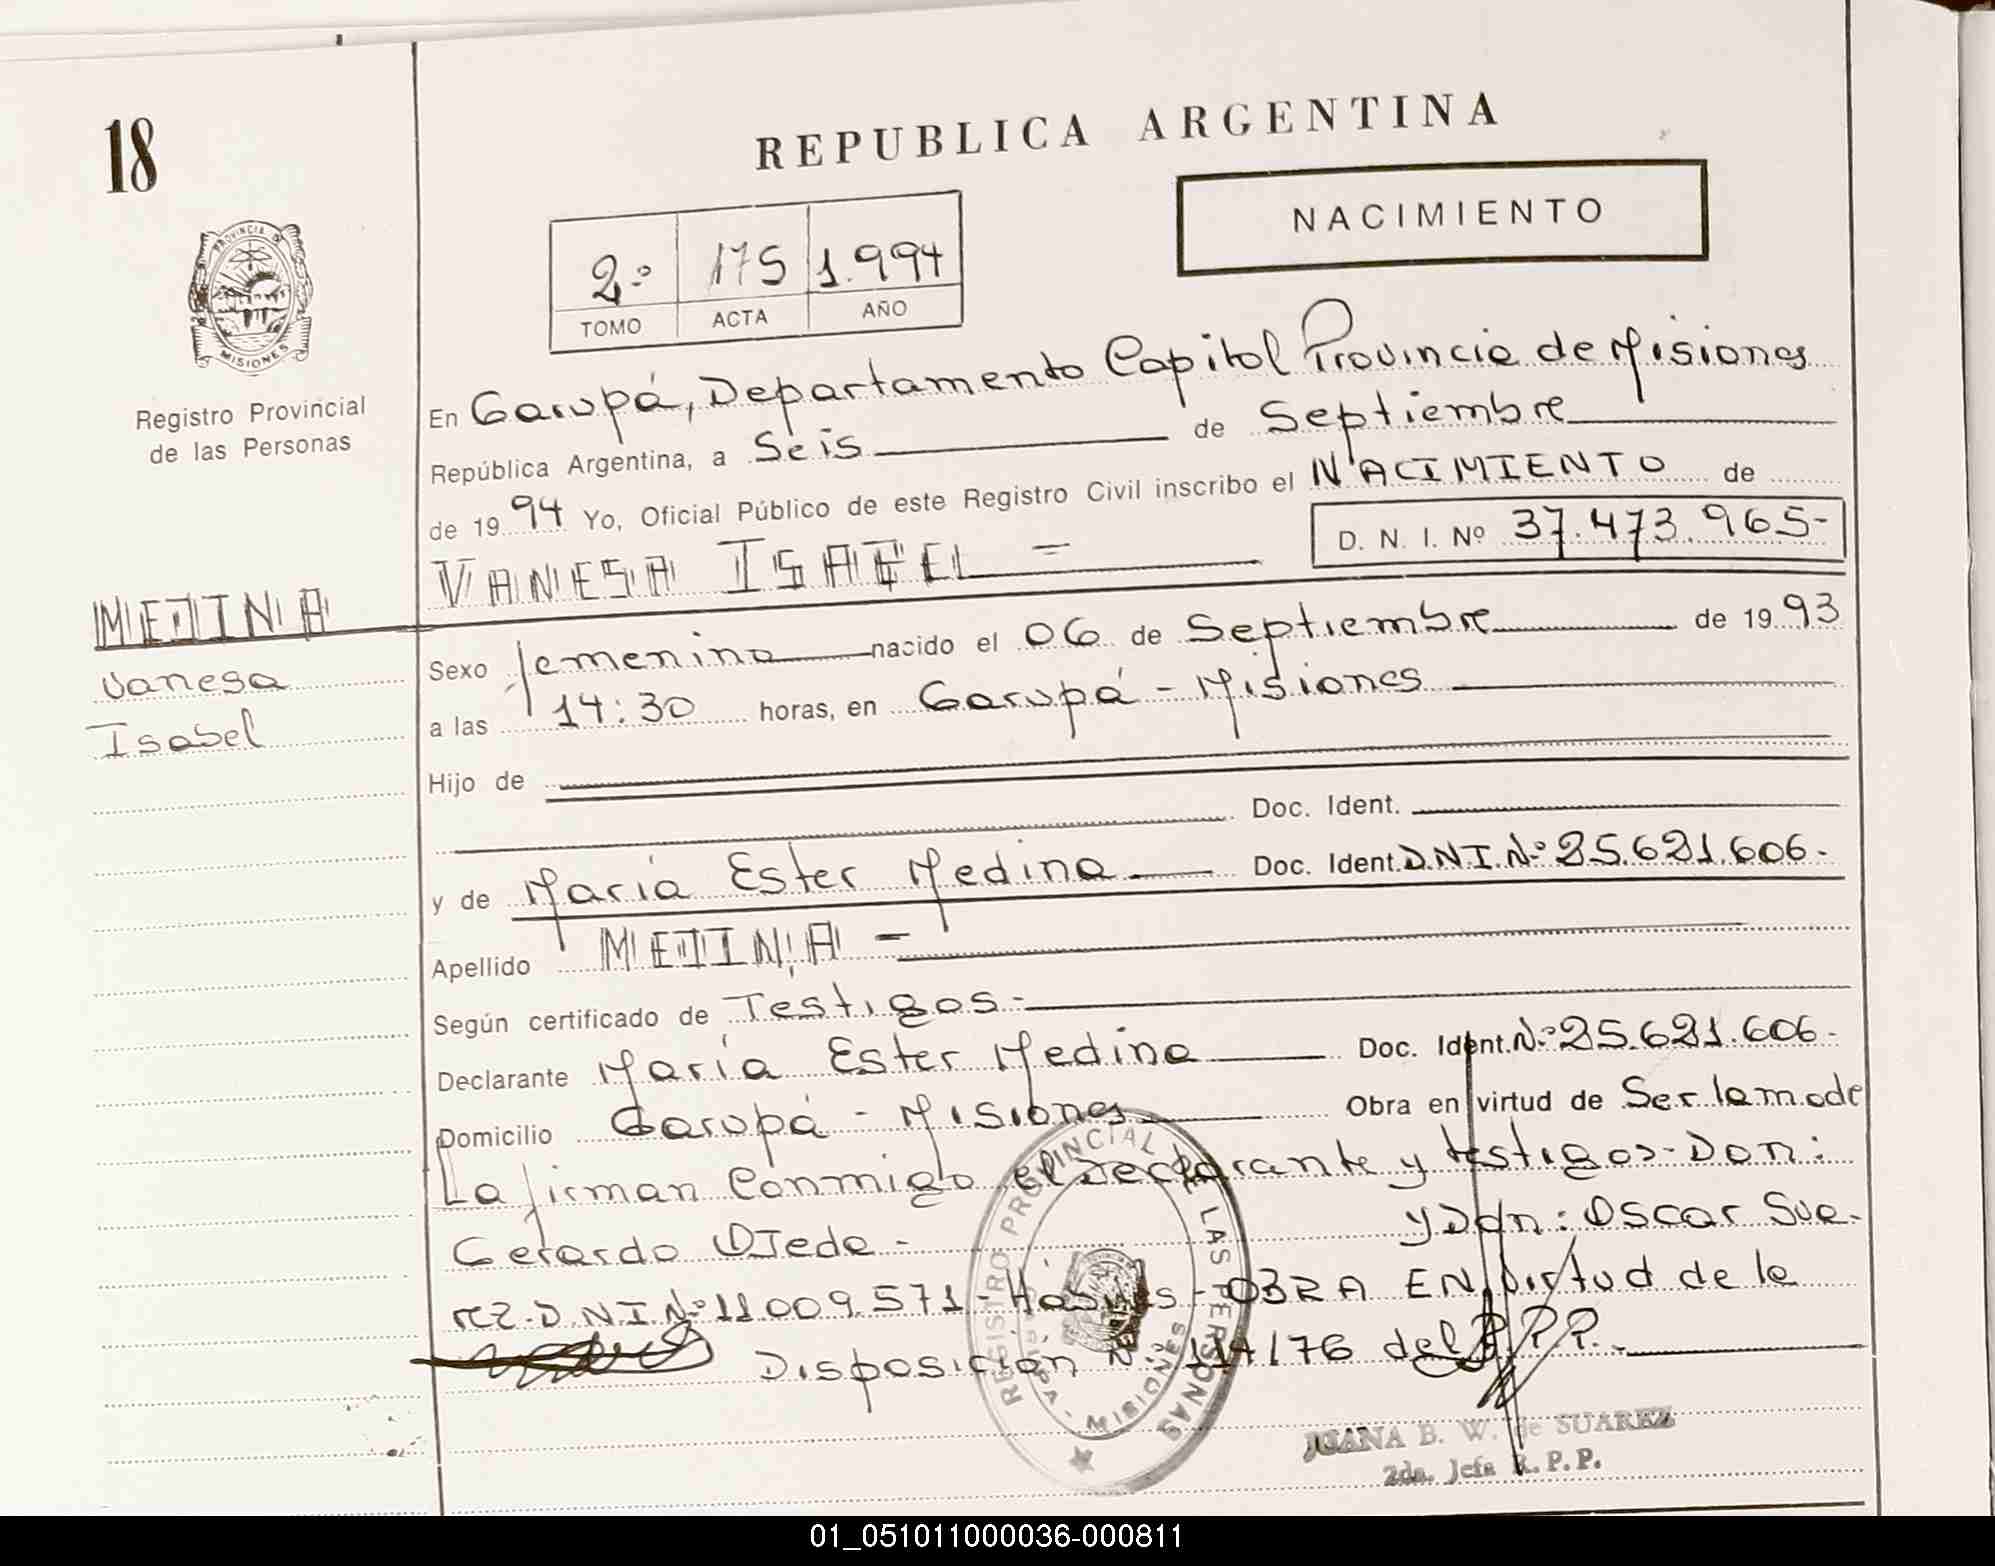 18
REPUBLICA ARGENTINA
NACIMIENTO
2º 175 1.994
TOMO ACTA AÑO
PROVINCIA DE MISIONES
Registro Provincial
de las Personas
En Garupá, Departamento Capital Provincia de Misiones
República Argentina, a Seis de Septiembre
de 1994 Yo, Oficial Público de este Registro Civil inscribo el NACIMIENTO de
VANESA ISABEL =
D. N. I. Nº 37.473.965-
MEDINA
Vanesa
Isabel
Sexo femenino nacido el 06 de Septiembre de 1993
a las 14:30 horas, en Garupá - Misiones
Hijo de
Doc. Ident.
y de María Ester Medina Doc. Ident. D.N.I.Nº 25.621.606-
Apellido MEDINA -
Según certificado de Testigos.-
Declarante María Ester Medina Doc. Ident. Nº 25.621.606-
Domicilio Garupá - Misiones Obra en virtud de Ser la made
La firman Conmigo el Declarante y testigos-Don:
Gerardo Ojeda - y Don: Oscar Sue-
rez-D.N.I.Nº 11.009.571- Hábiles - OBRA EN Virtud de la
Disposición Nº 114/76 del R.P.P.
REGISTRO PROVINCIAL DE LAS PERSONAS
MISIONES
JUANA B. W. de SUAREZ
2da. Jefa R. P. P.
01_051011000036-000811